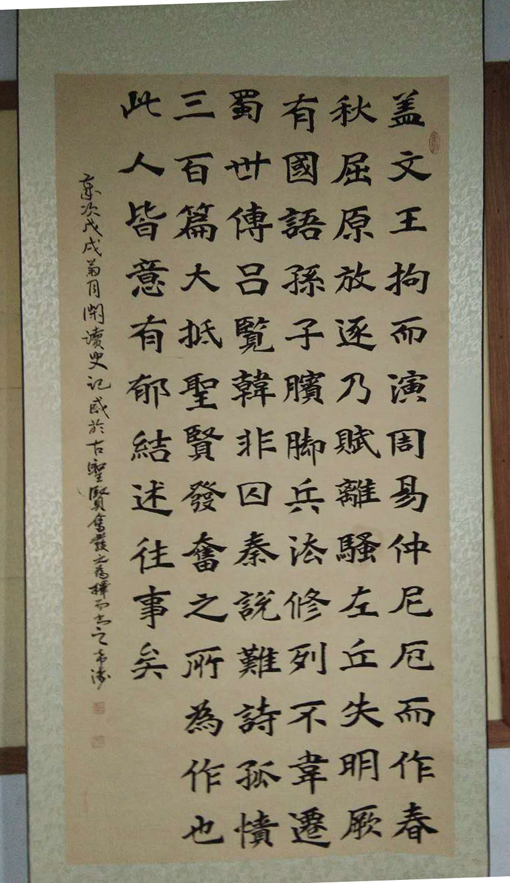 盖文王拘而演周易仲尼厄而作春
秋屈原放逐乃賦離騷左丘失明厥
有國語孫子臏脚兵法修列不韋遷
蜀世傳呂覽韓非囚秦説難詩孤憤
三百篇大抵聖賢發奮之所為作也
此人皆意有郁結述往事矣
歲次戊戌菊月閑讀史記感於古聖賢奮發之為擇而書之